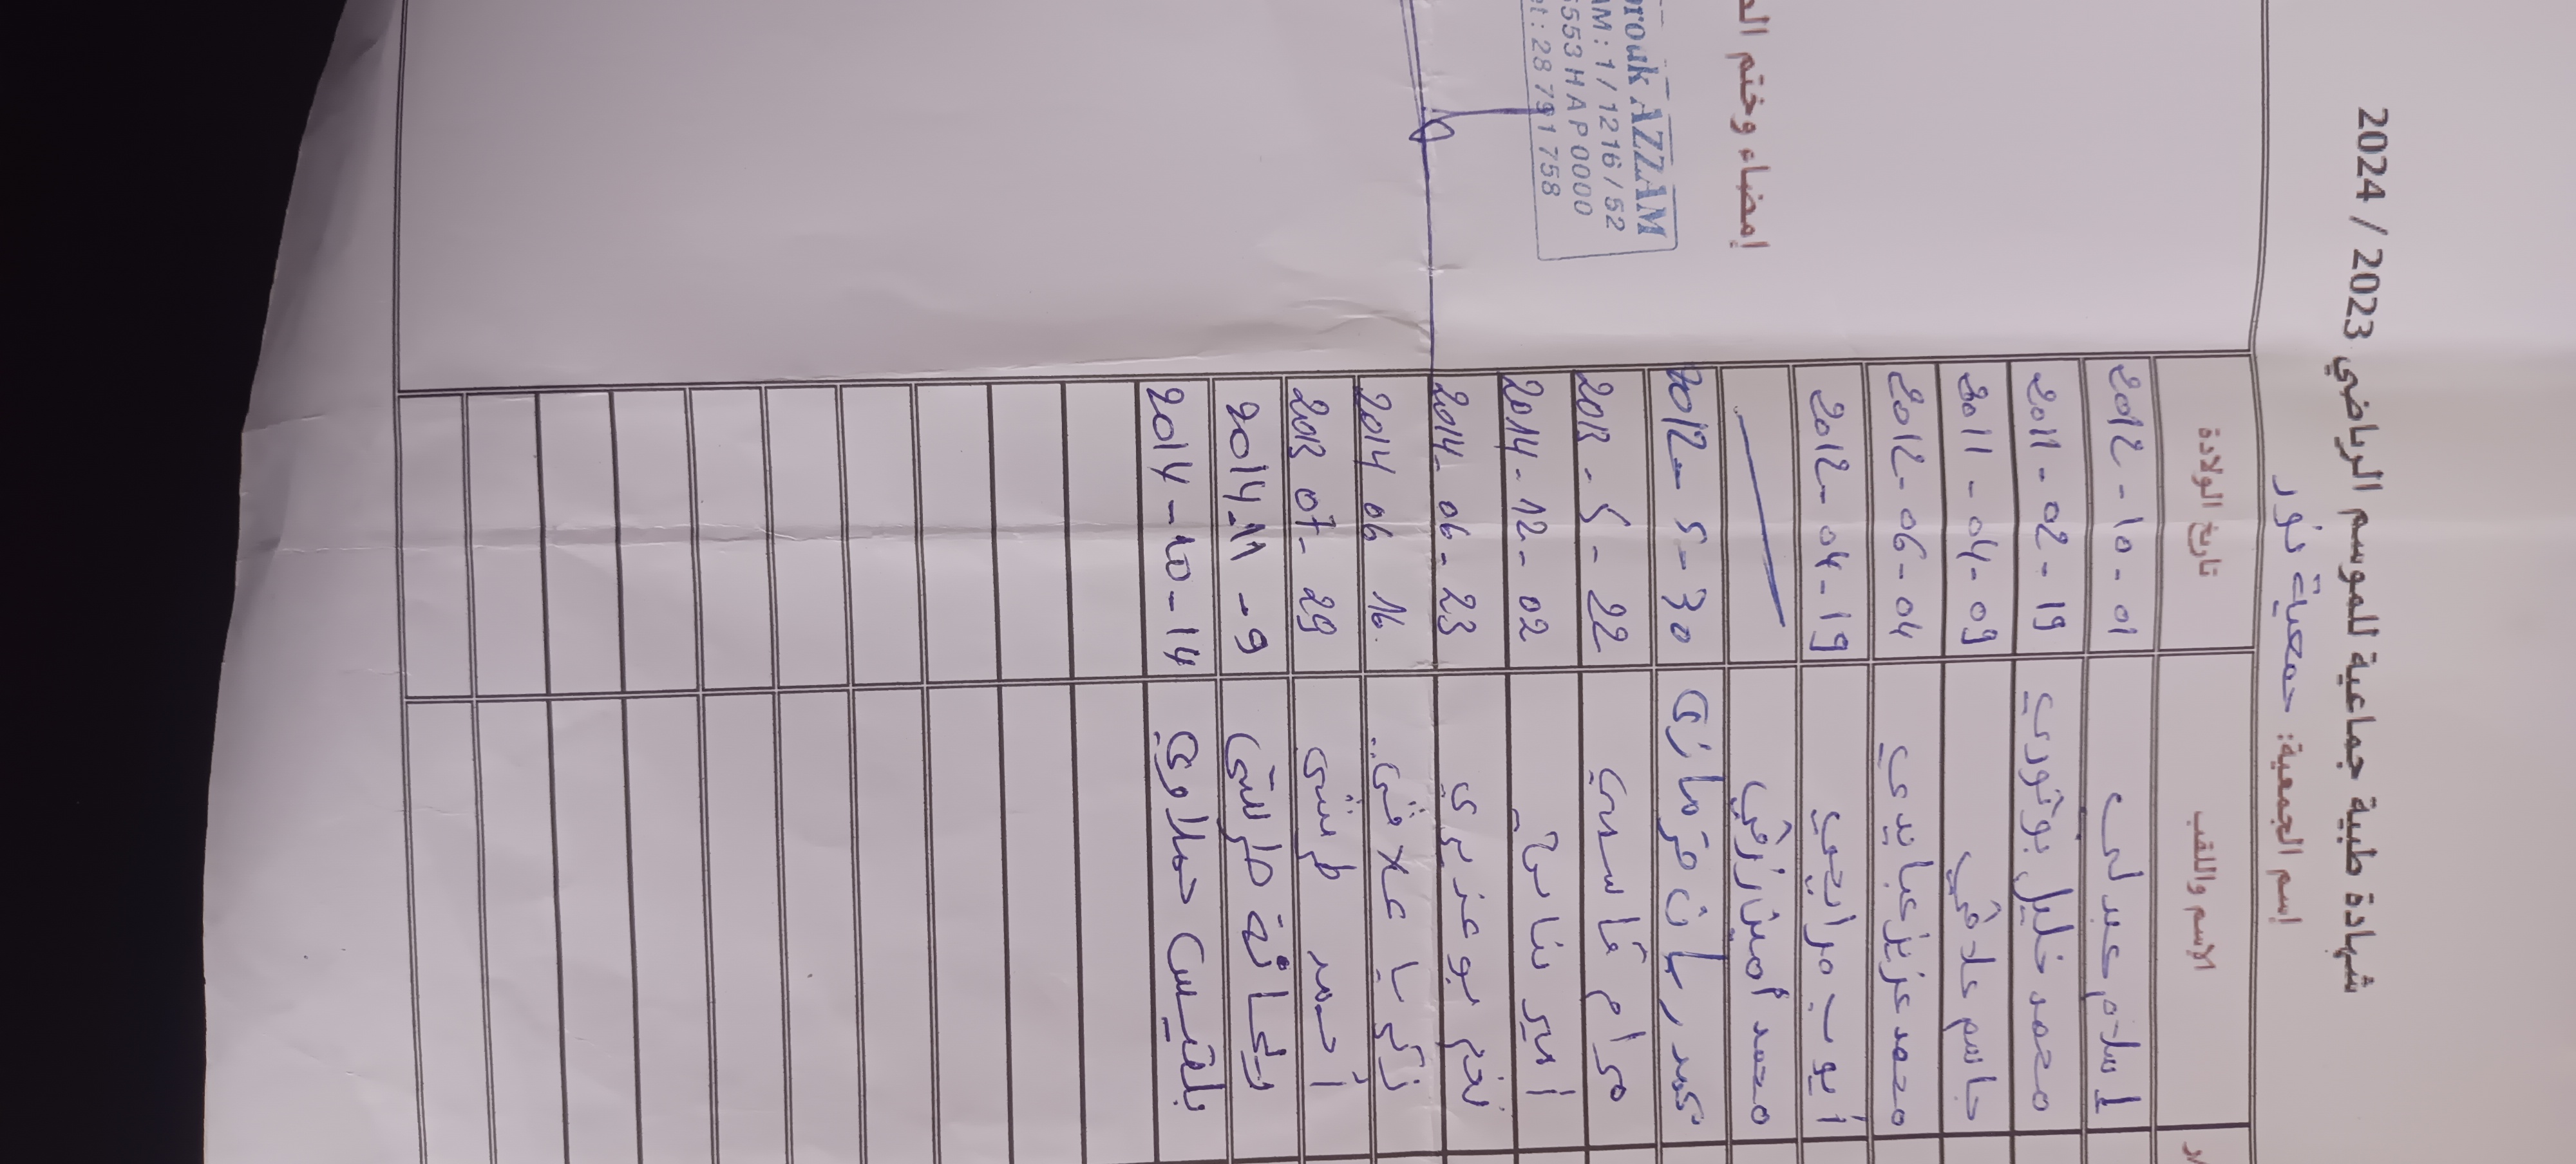 شهادة طبية جماعية للموسم الرياضي 2023 / 2024
إسم الجمعية: جمعية نور
الاسم واللقب تاريخ الولادة
إسلام عبدلي 2012 - 10 - 01
محمد خليل بوثوري 2011 - 02 - 19
جاسم علاقي 2011 - 04 - 09
محمد عزيز عبايدي 2012 - 06 - 04
أيوب مرايحي 2012 - 04 - 19
محمد أمين رزقي
قرمازي 2012 - 5 - 30
مرام قاسمي 2013 - 5 - 22
أمير 2014 - 12 - 02
بوعزيزي 2014 - 06 - 23
زكريا علاقي 2014 06 16
أحمد طرشي 2013 07 - 29
2014 - 11 - 9
بلقيس حملاوي 2014 - 10 - 14
إمضاء وختم
AZZAM
1 / 1216 / 52
5553 H A P 0000
: 28 791 758